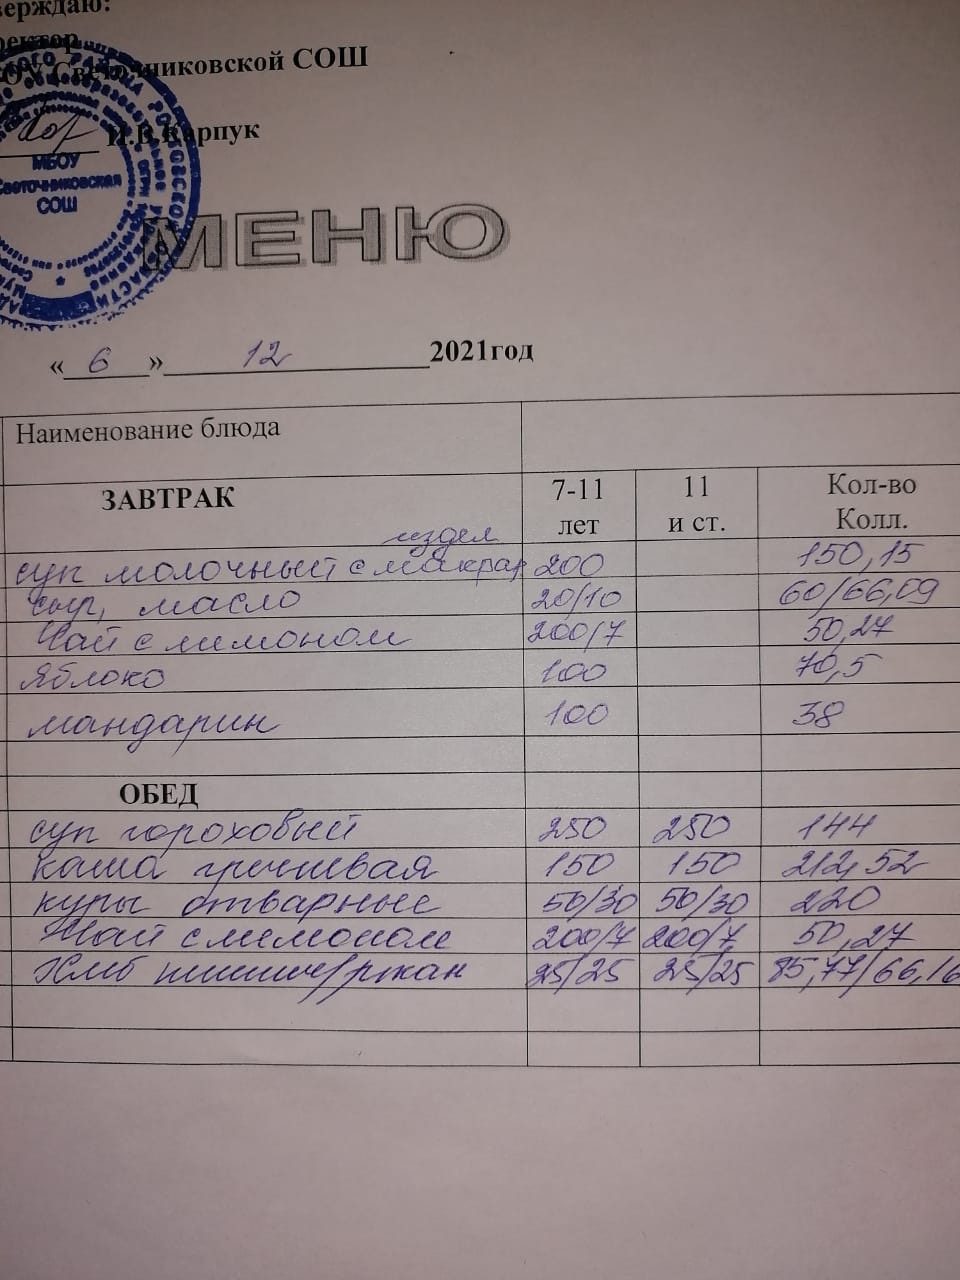 верждаю:
ректор
ОУ Светочниковской СОШ
И.В.Карпук
МБОУ
Светочниковская
СОШ
МЕНЮ
« 6 » 12 2021год
Наименование блюда
ЗАВТРАК 7-11 лет 11 и ст. Кол-во Колл.
издел
суп молочный с макар 200 150,15
сыр, масло 20/10 60/66,09
Чай с лимоном 200/7 50,27
Яблоко 100 70,5
мандарин 100 38
ОБЕД
суп гороховый 250 250 144
каша гречневая 150 150 212,52
куры отварные 50/30 50/30 220
Чай с лимоном 200/7 200/7 50,27
Хлеб пшенич/ржан 25/25 25/25 85,77/66,16